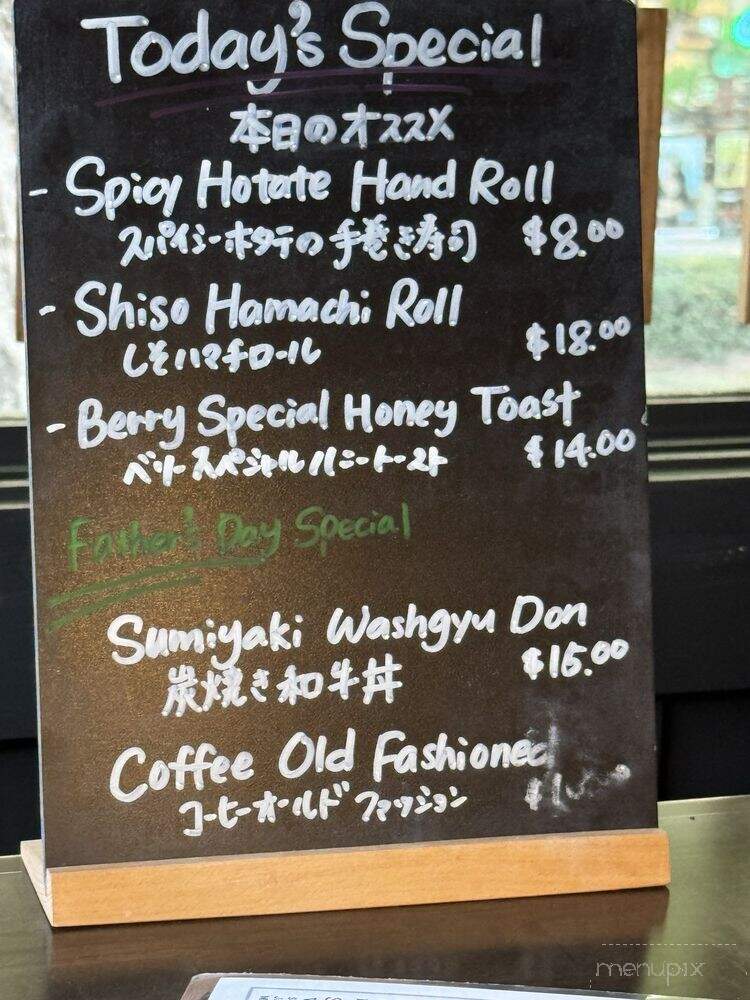 Today's Special
本日のオススメ
- Spicy Hotate Hand Roll
スパイシーホタテの手巻き寿司 $8.00
- Shiso Hamachi Roll
しそハマチロール $18.00
- Berry Special Honey Toast
ベリースペシャルハニートースト $14.00
Father's Day Special
Sumiyaki Washgyu Don
炭焼き和牛丼 $16.00
Coffee Old Fashioned
コーヒーオールドファッション
menupix